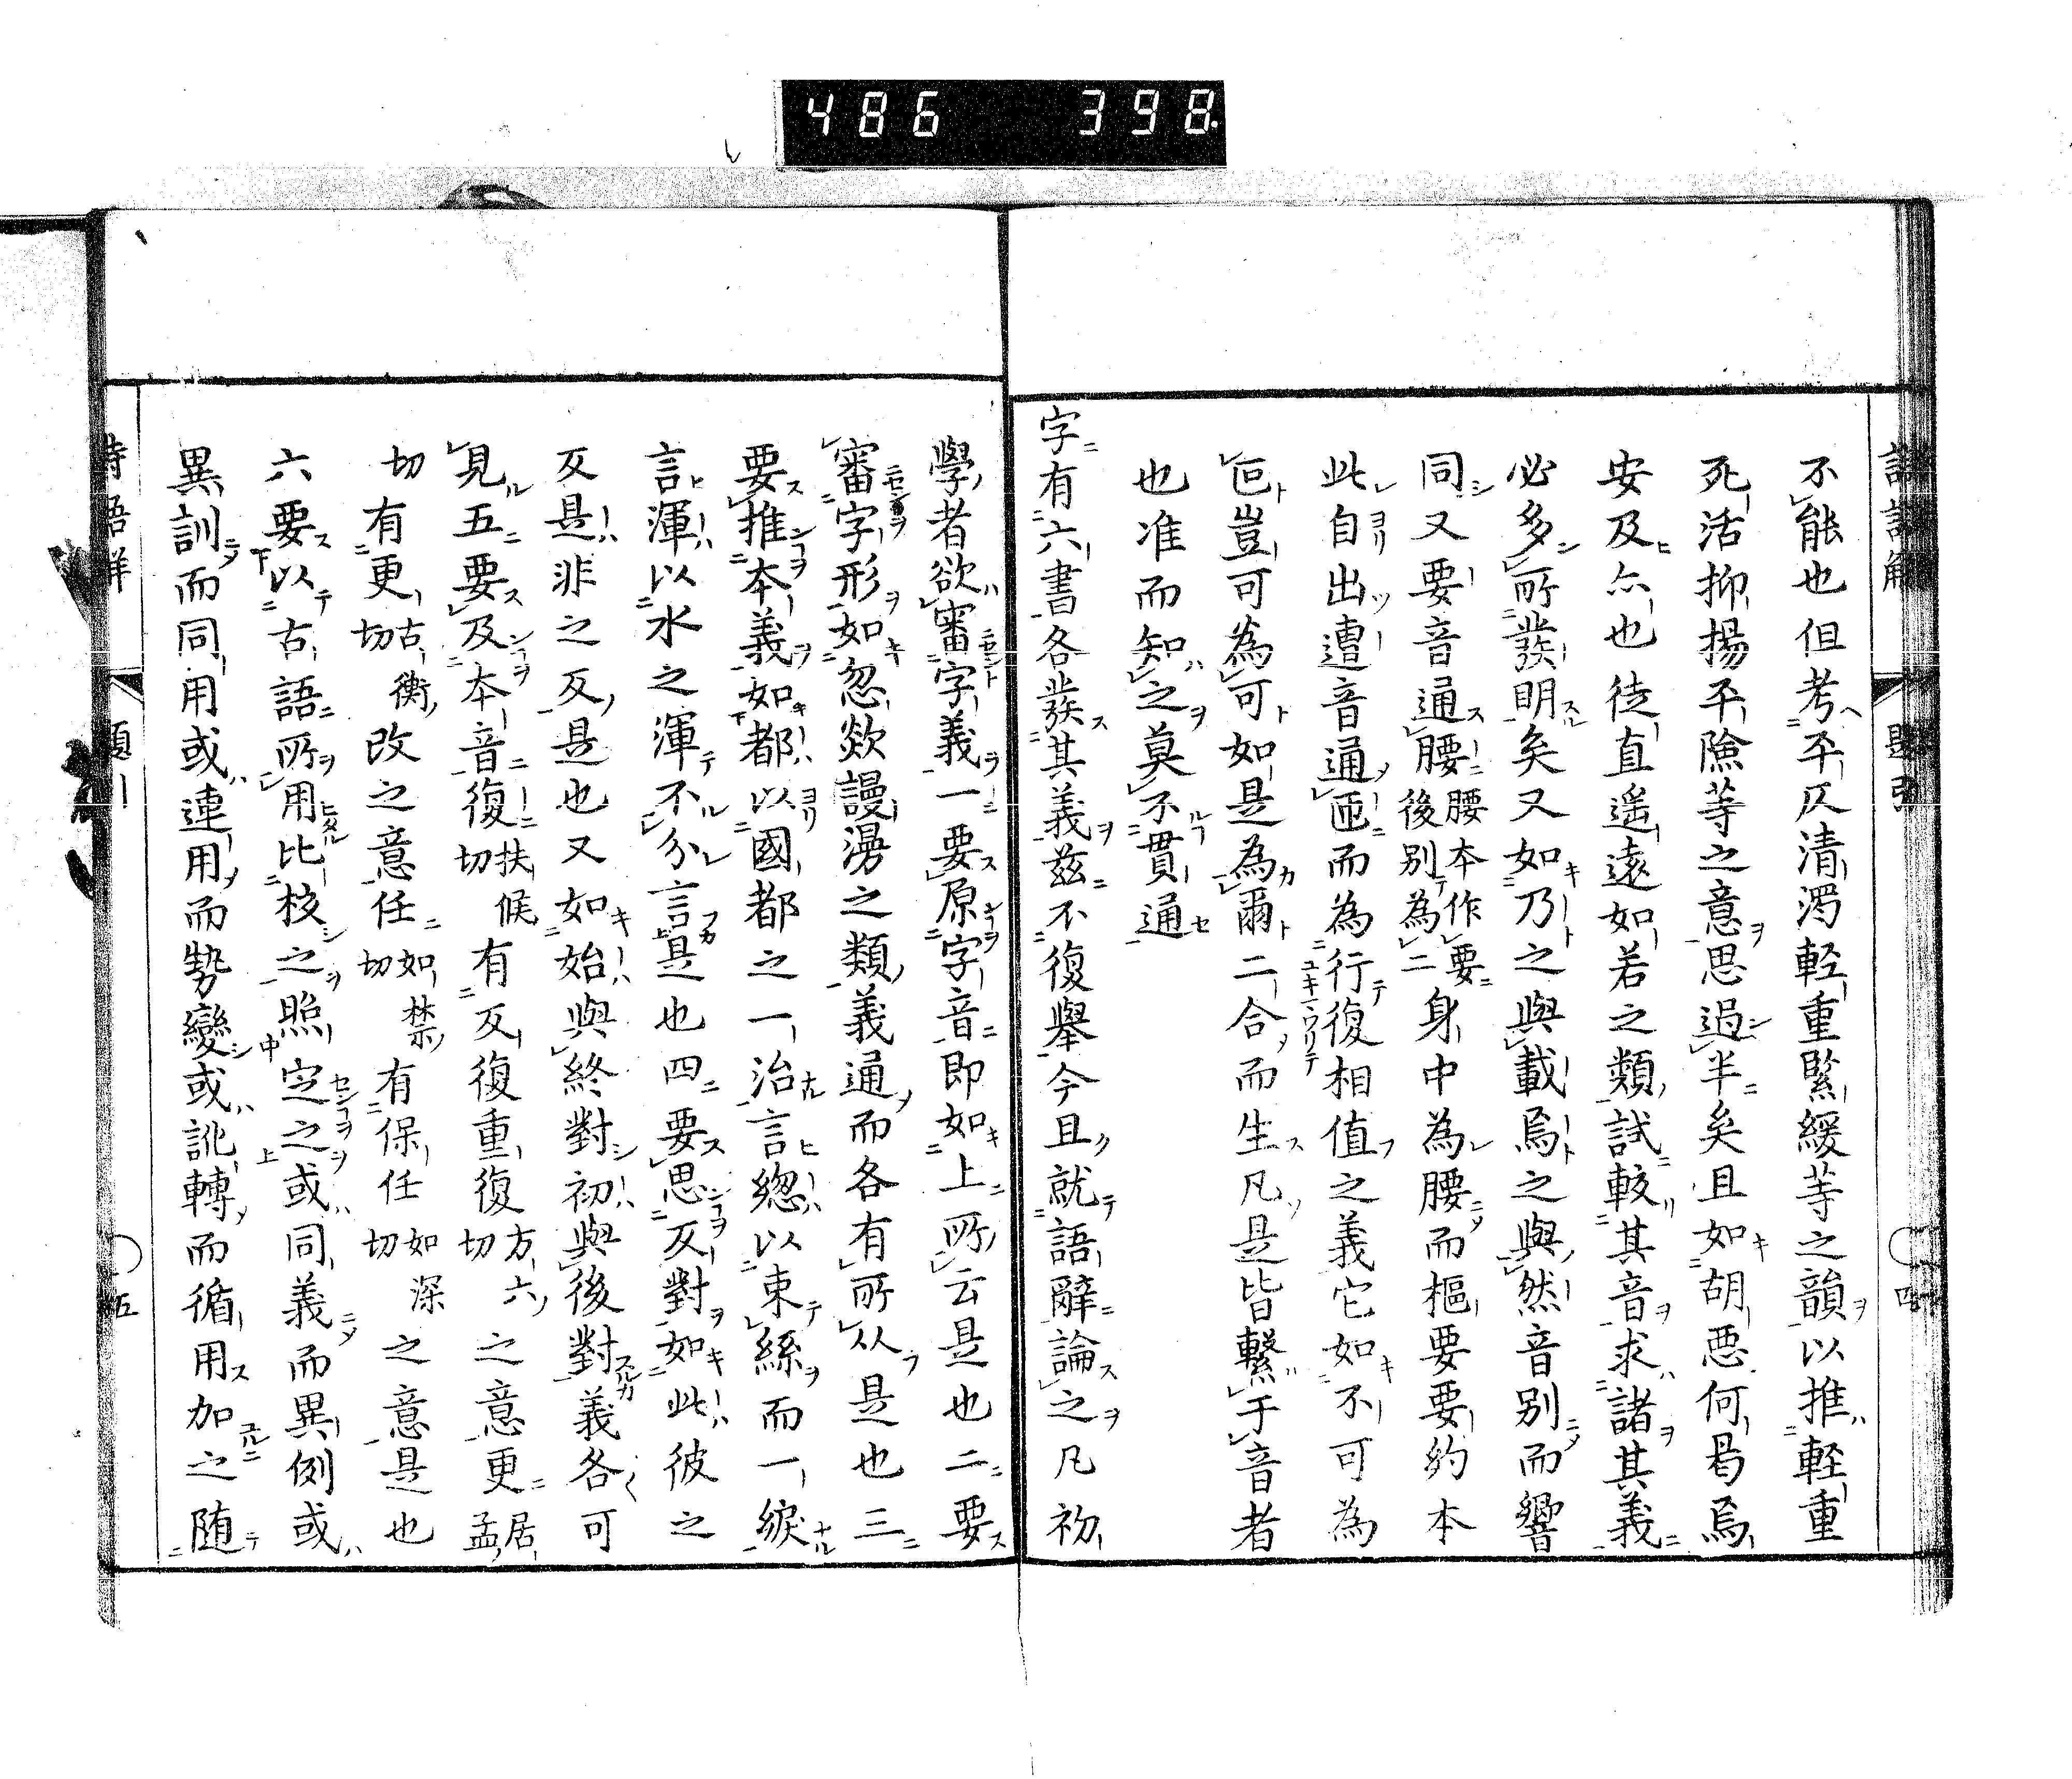 486 398
不能也但考平仄清濁軽重緊緩等之韻以推軽重
死活抑揚平險等之意思過半矣且如胡惡何曷焉
安及亦也徒直遥遠如若之類試較其音求諸其義
必多所発明矣又如乃之與載焉之與然音別而響
同又要音通腰腰本作要後別為二身中為腰而樞要要約本
此自出遭音通迊而為行復相值之義它如不可為
叵豈可為可如是為爾二合而生凡是皆繫于音者
也准而知之莫不貫通
字有六書各発其義茲不復舉今且就語辭論之凡初
學者欲審字義一要原字音即如上所云是也二要
審字形如忽欻謾漫之類義通而各有所从是也三
要推本義如都以國都之一治言總以束絲而一綟
言渾以水之渾不分言是也四要思反對如此彼之
反是非之反是也又如始與終對初與後對義各可
見五要及本音復扶候切有反復重復方六切之意更居孟
切有更古衡切改之意任如禁切有保任如深切之意是也
六要以古語所用比校之照定之或同義而異例或
異訓而同用或連用而勢變或訛轉而循用加之随
題引
四
五